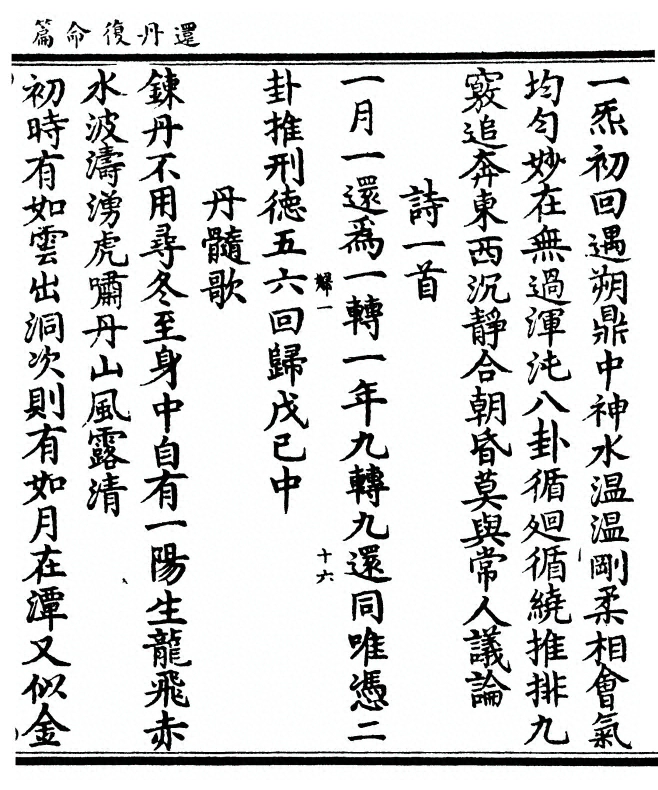 還丹復命篇
一炁初回遇朔鼎中神水温温剛柔相會氣
均勻妙在無過渾沌八卦循廻循繞推排九
竅追奔東西沉靜合朝昏莫與常人議論
詩一首
一月一還爲一轉一年九轉九還同唯憑二
婦一
十六
卦推刑德五六回歸戊己中
丹髓歌
鍊丹不用尋冬至身中自有一陽生龍飛赤
水波濤湧虎嘯丹山風露清
初時有如雲出洞次則有如月在潭又似金